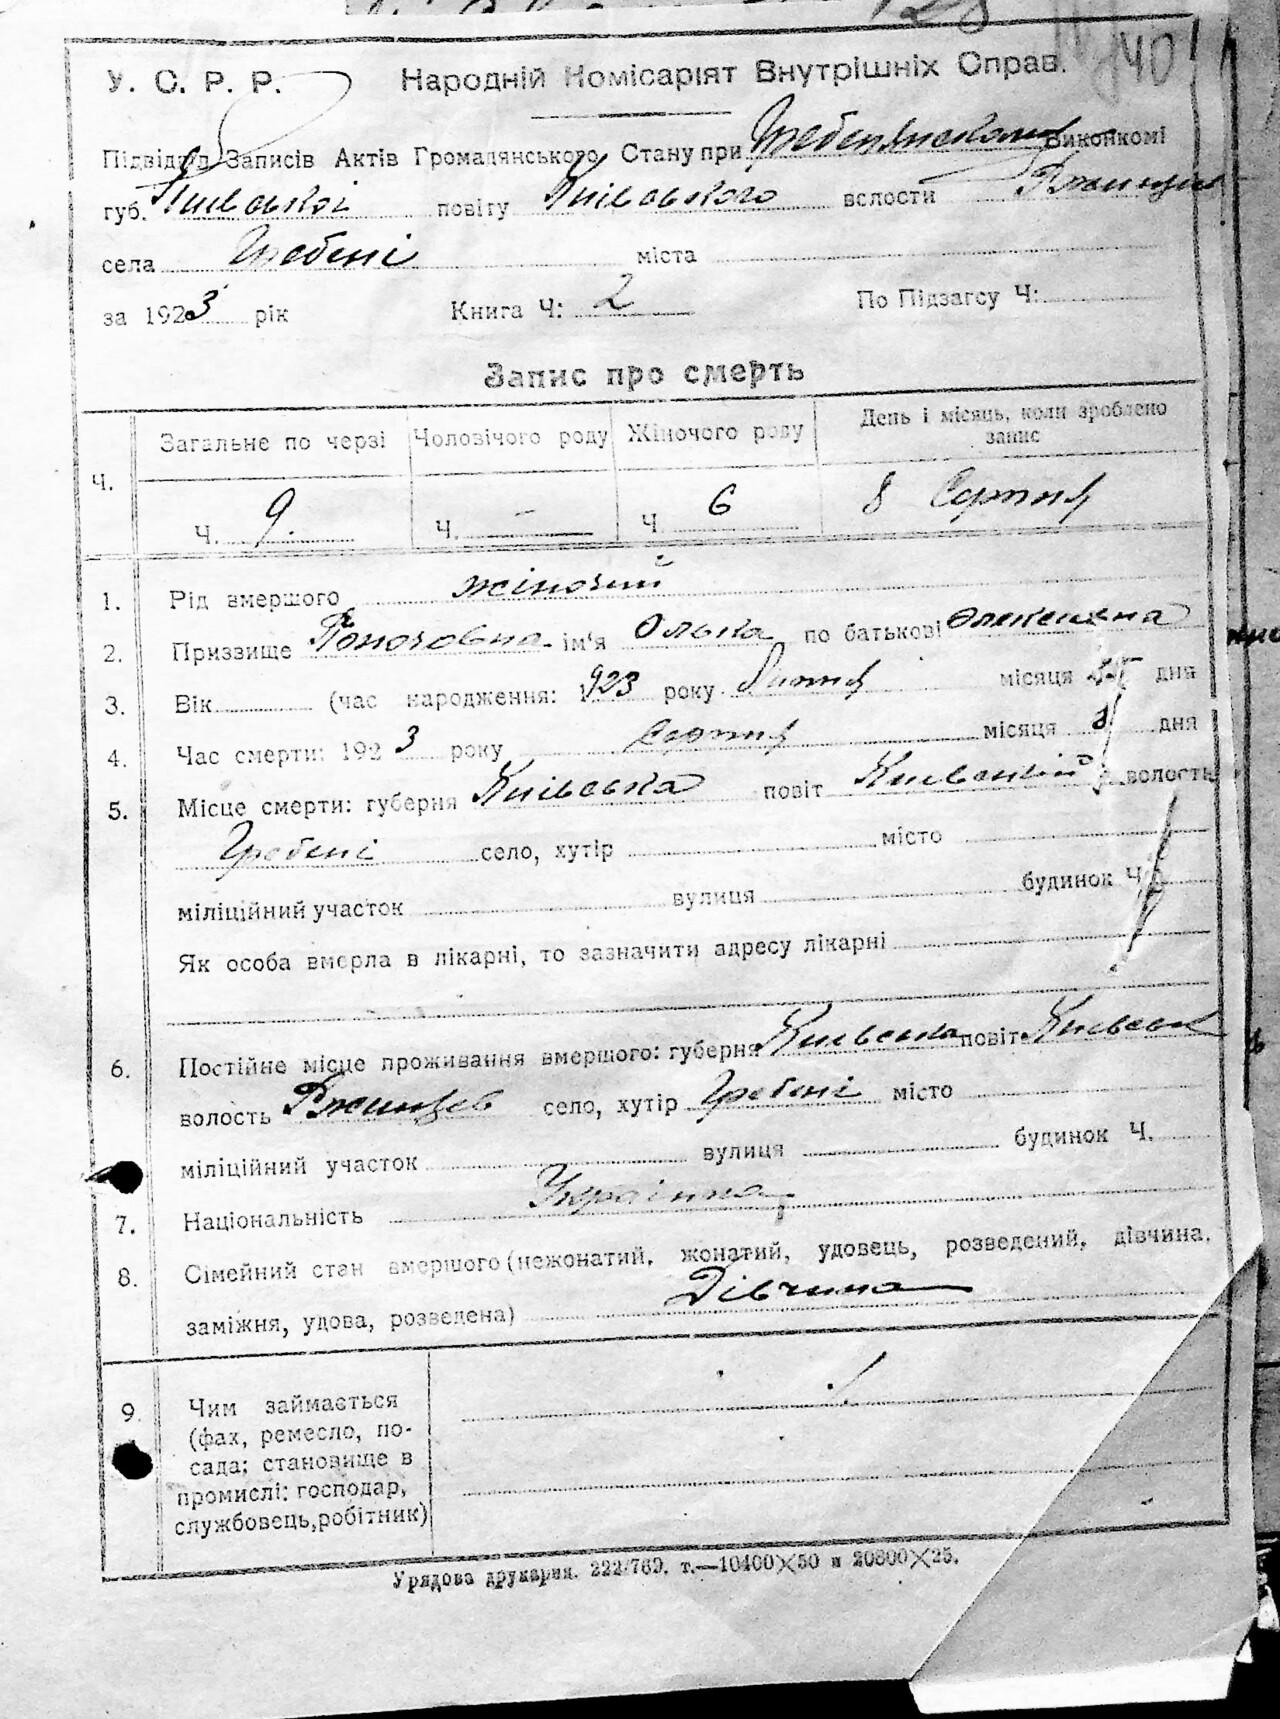 140
У. С. Р. Р. Народній Комісаріят Внутрішніх Справ.
Підвідділ Записів Актів Громадянського Стану при Гребенянском Виконкомі
губ. Київської повіту Київського волости Ржищів
села Гребені міста
за 1923 рік Книга Ч: 2 По Підзагсу Ч:
Запис про смерть
Ч. Загальне по черзі Чоловічого роду Жіночого роду День і місяць, коли зроблено запис
Ч. 9. Ч. — Ч. 6 8 Серпня
1. Рід вмершого жіночий
2. Призвище ім'я Олька по батькові Олексіївна
3. Вік (час народження: 1923 року Липня місяця дня
4. Час смерти: 1923 року Серпня місяця 8 дня
5. Місце смерти: губерня Київська повіт Киевский волость
Гребені село, хутір місто
міліційний участок вулиця будинок Ч.
Як особа вмерла в лікарні, то зазначити адресу лікарні
6. Постійне місце проживання вмершого: губерня Київська повіт Київськ
волость Ржищев село, хутір Гребені місто
міліційний участок вулиця будинок Ч.
7. Національність Українка
8. Сімейний стан вмершого (нежонатий, жонатий, удовець, розведений, дівчина,
заміжня, удова, розведена) Дівчина
9. Чим займається
(фах, ремесло, по-
сада; становище в
промислі: господар,
службовець, робітник)
Урядова друкарня. 222/769. т.—10400×50 и 20800×25.